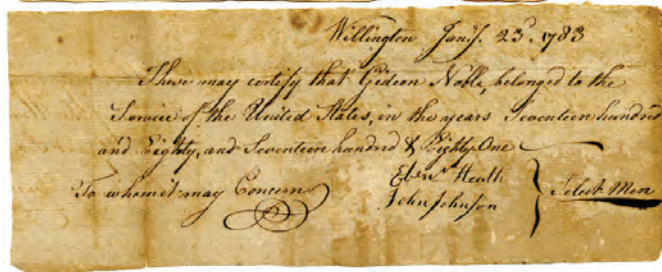 Willington Jany. 23d. 1783
These may certify that Gideon Noble, belonged to the
Service of the United States, in the years Seventeen hundred
and Eighty, and Seventeen hundred & Eighty One
To whom it may Concern
Ebenr. Heath
John Johnson
Select Men